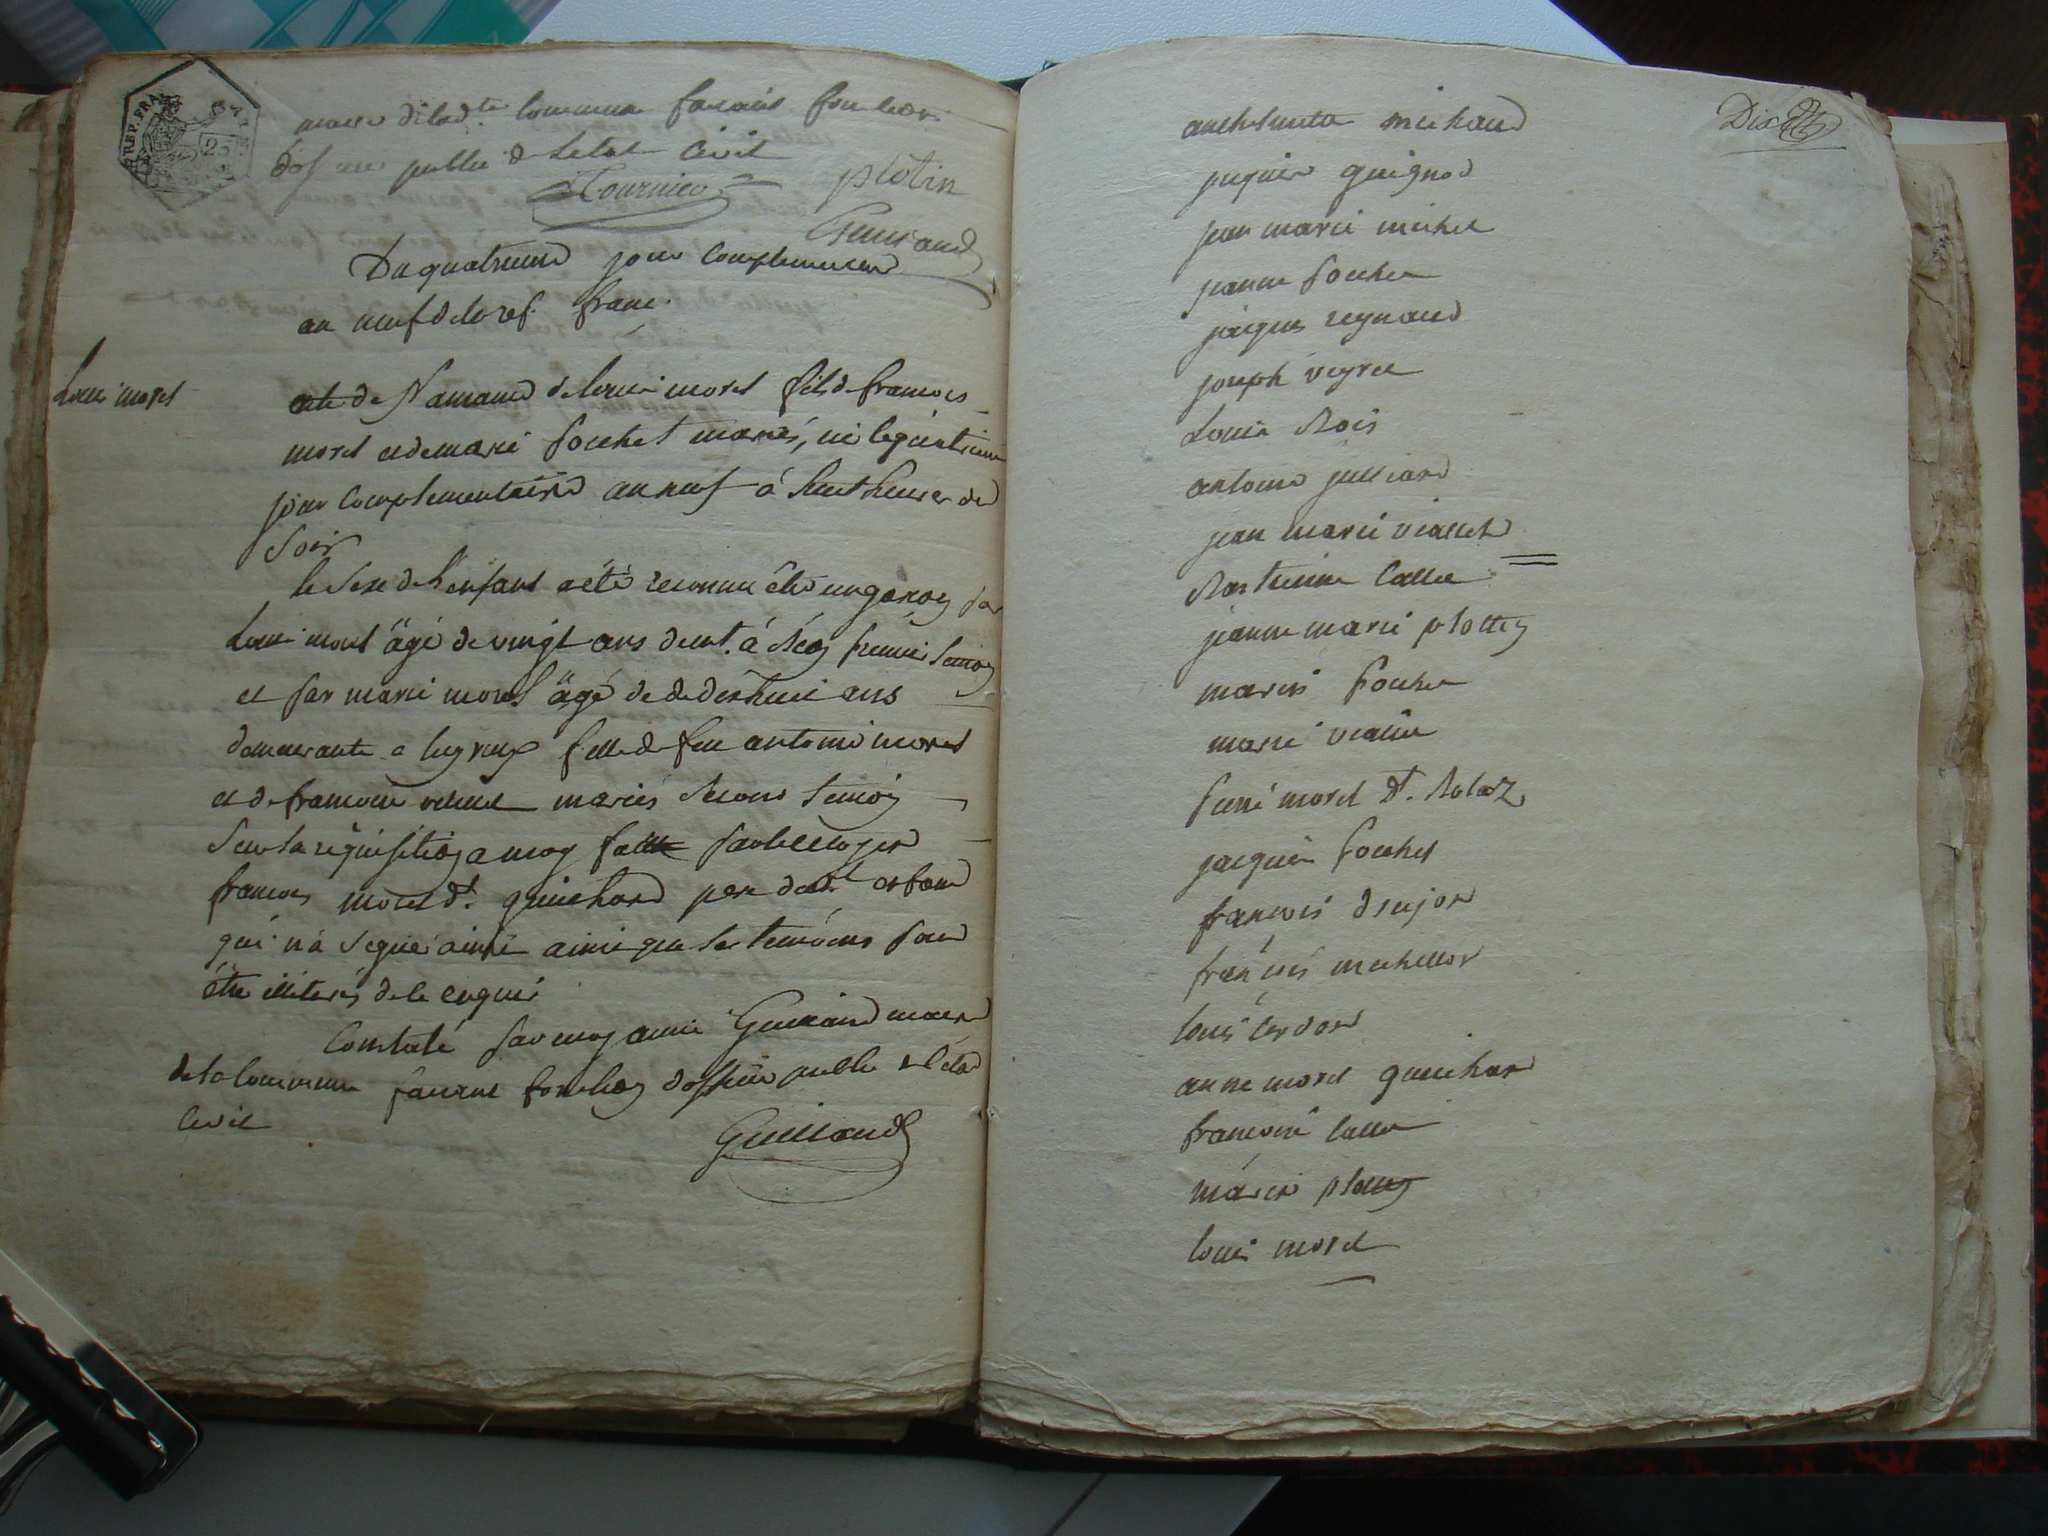 REP. FRA
25
maire de lad.te commune faisant fon
public de letat Civil
Tournier
plotin
Guiraud
Du quatrieme jour Complementaire
an neuf de la ref. franc.
Louis morel
acte de Naissance de louis morel fils de francois
morel et de marie pouchet mariés, né le quatrieme
jour Complementaire an neuf à huit heures du
Soir
le Sexe de l'enfant a été reconnu être un garçon par
Louis morel âgé de vingt ans demt. à premier temoin
et par marie morel âgé de de dixhuit ans
demeurante a fille de feu antoine morel
et de francoise mariés Second temoin
Sur la réquisition a moy faitte par le citoyen
francois morel dt. guichard pere dudt. enfant
qui n'a Signé ainsi que les temoins pour
être illiterés de ce enquis
Constaté par moy Guiraud maire
de la Commune faisant fonction d'officier public de l'état
Civil
Guiraud
Dix
michaud
guignod
jean marie michel
jeanne pouchet
jacques reynaud
joseph veyret
Louis Rois
antoine julliard
jean marie viallet
Callet
jeanne marie plottey
marie pouchet
marie
pierre morel dt. Rolaz
jacques pouchet
francois drujon
francois
louis cordon
anne morel guichard
francoise Callet
marie plottey
louis morel